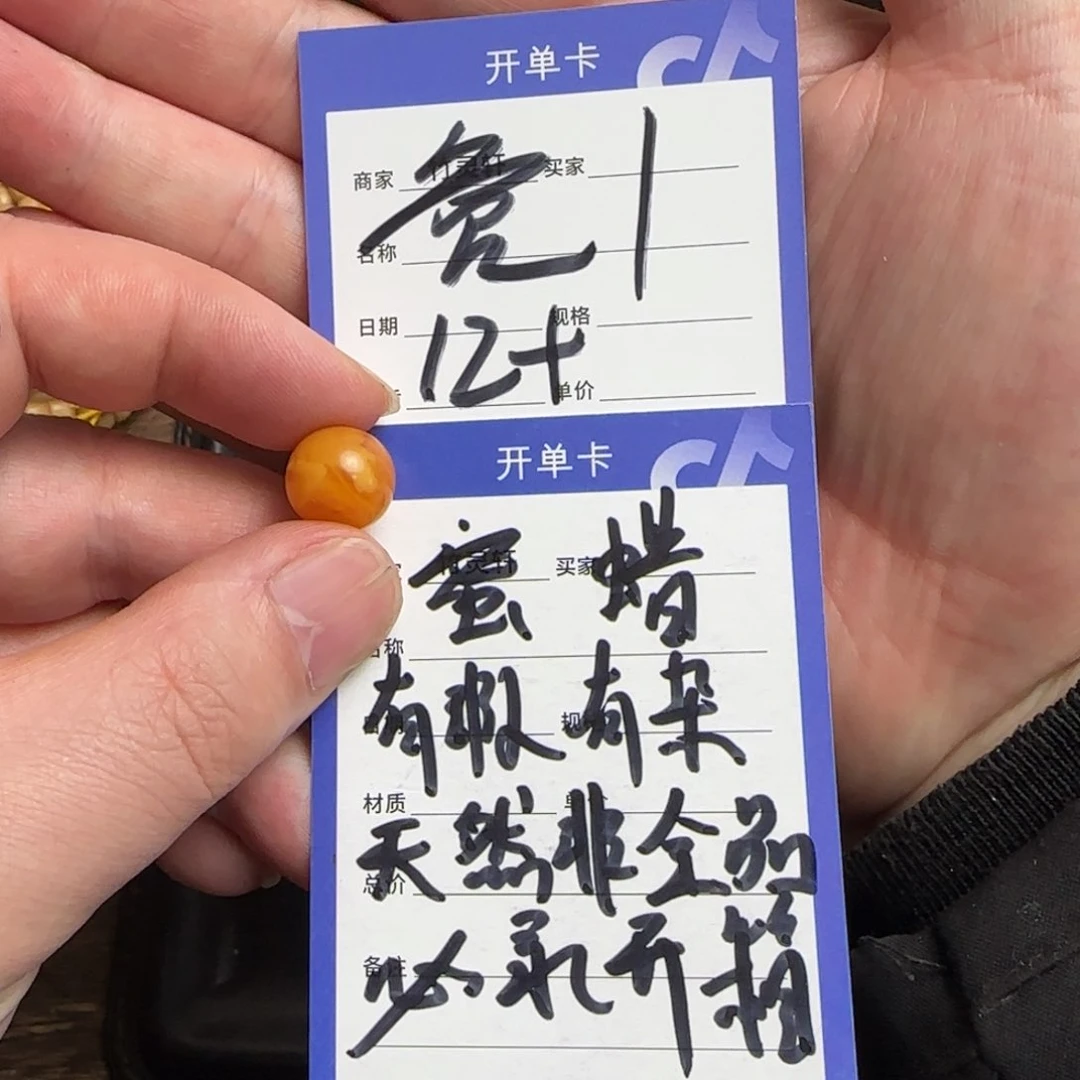 开单卡
商家 竹灵轩 买家
竞1
名称
日期 规格
12+
单价
开单卡
竹灵轩 买家
蜜 蜡
名称
有瑕 有杂
规格
材质 单价
天然非全品
总价
必录开箱
备注